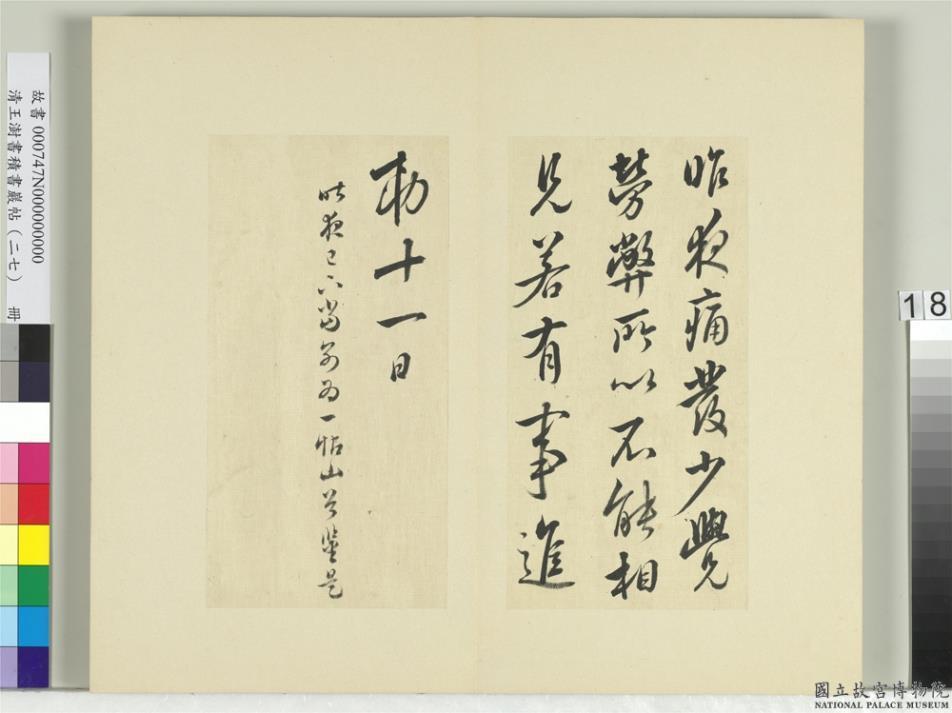 昨夜痛發少覺
勞弊所以不能相
見若有事進
勅十一日
昨夜已下當别為一帖山谷鑒是
故書 000747N000000000
清王澍書積書巖帖（二七） 冊
18
國立故宮博物院
NATIONAL PALACE MUSEUM